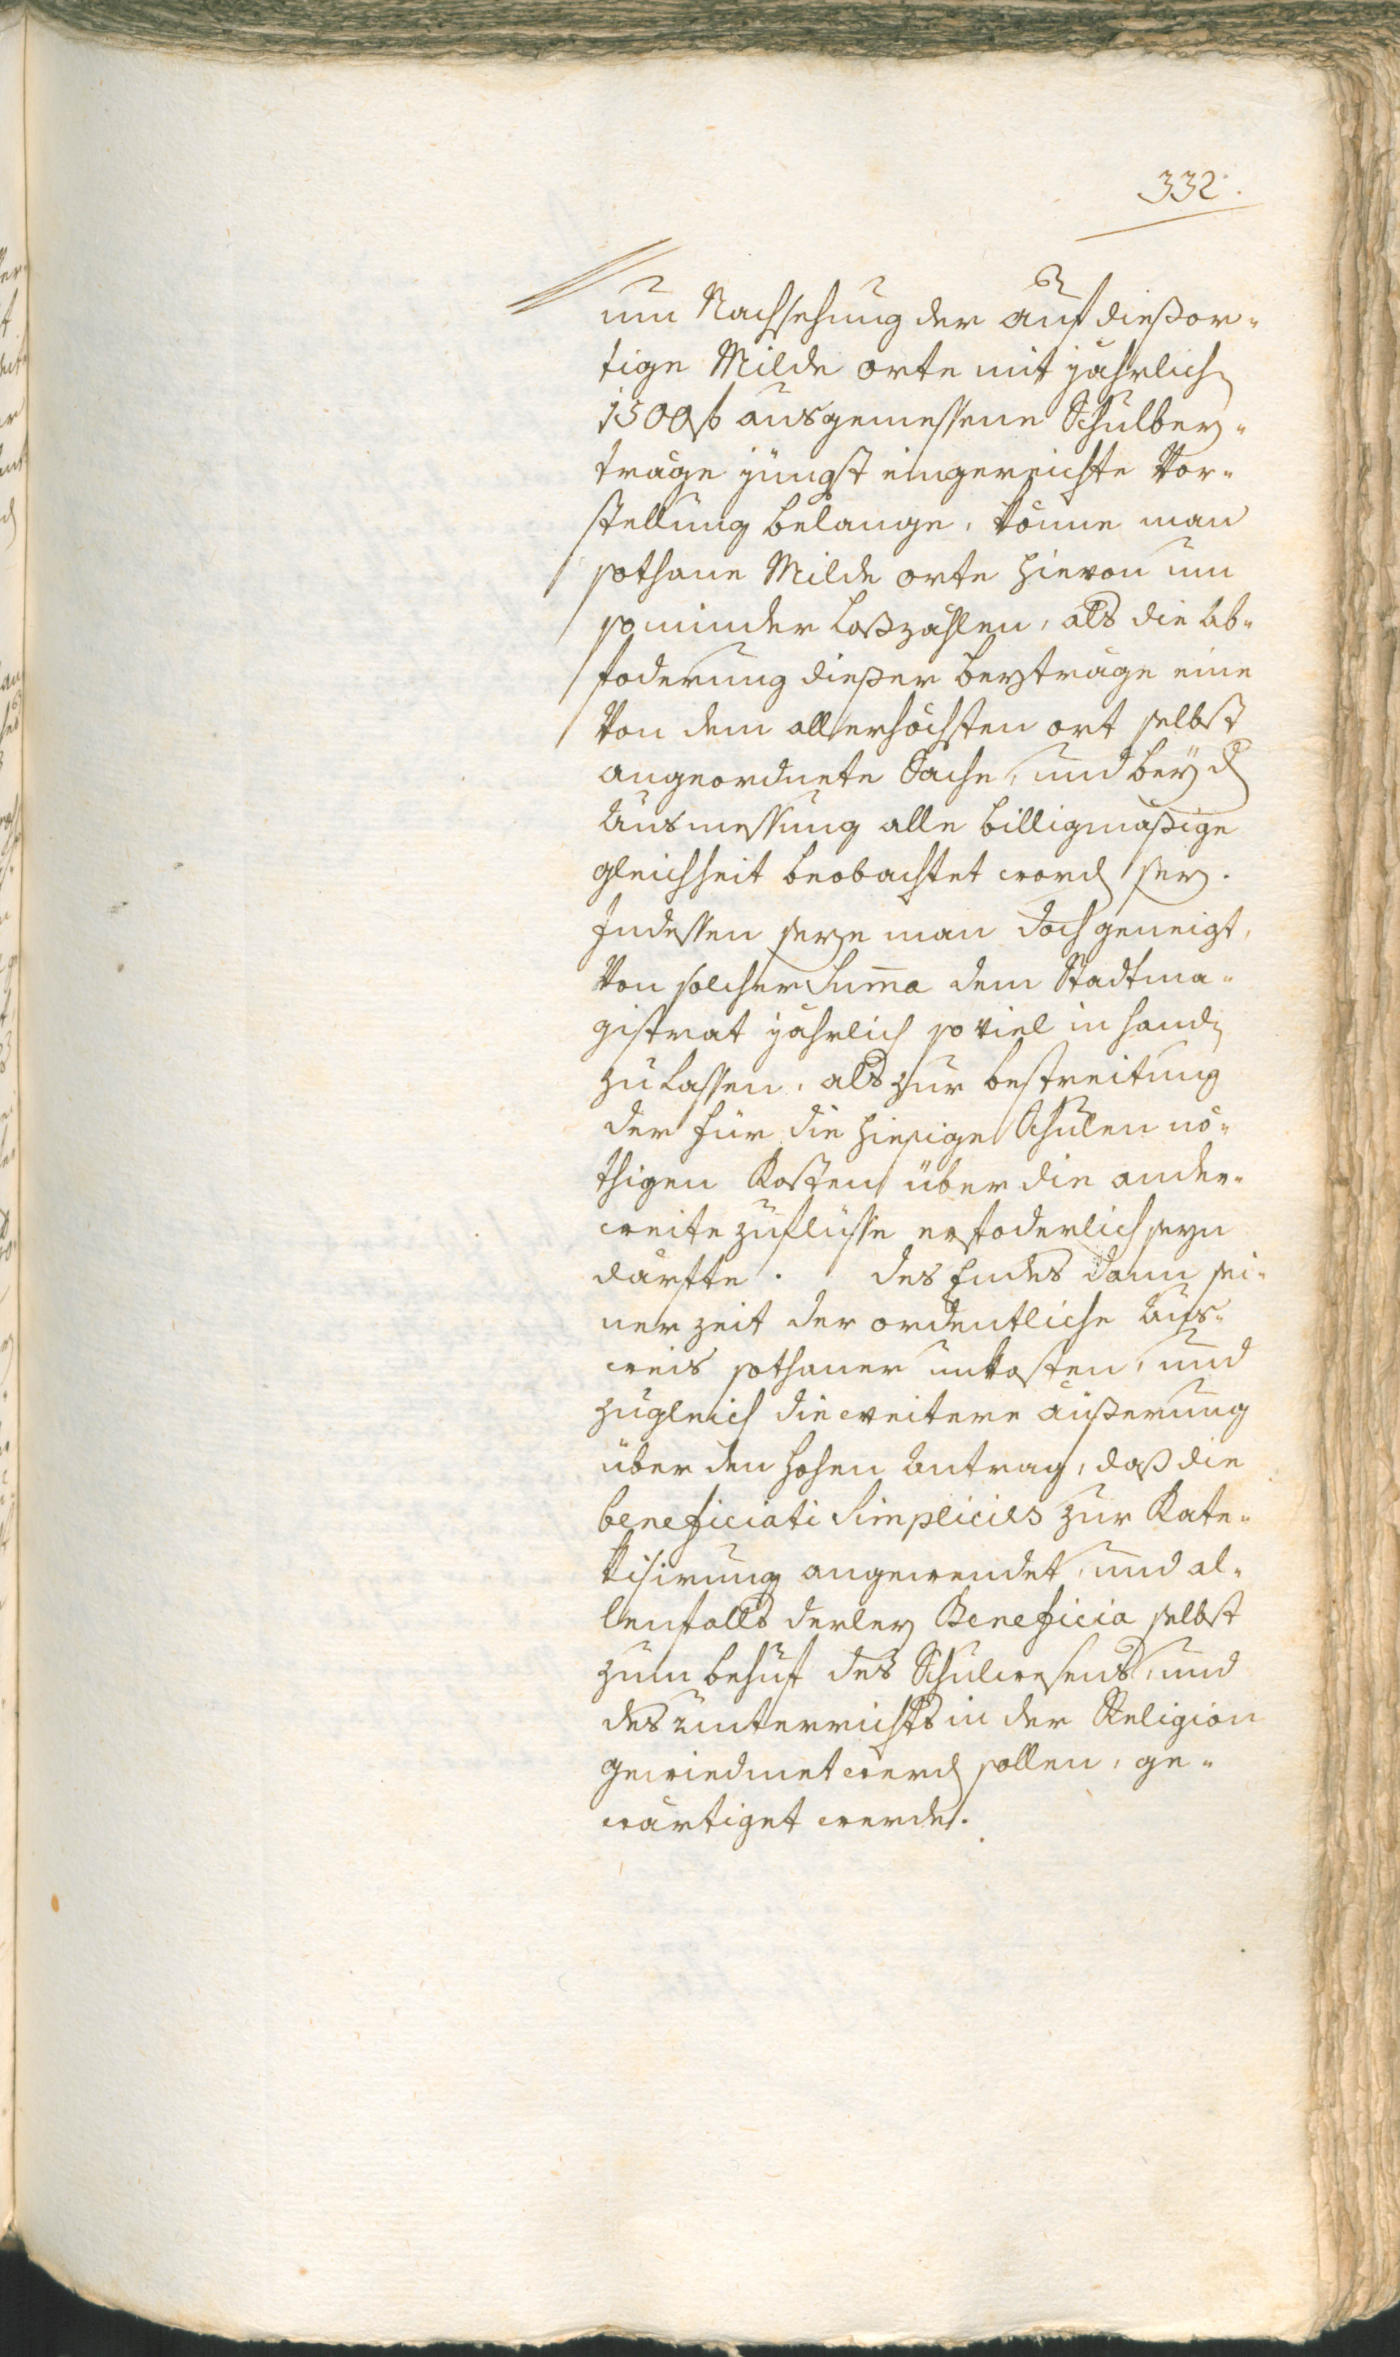 332.
um Nachsehung der auf dießor-
tige Milde orte mit jährlich
1500 f ausgemessene Schulbey-
träge jüngst eingereichte Vor-
stellung belange, könne man
sothane Milde orte hievon um
so minder loßzählen, als die Ab-
foderung dießer beyträge eine
Von dem allerhöchsten ort selbst
angeordnete Sache, und bey d
Ausmessung alle billigmäßige
gleichheit beobachtet word sey.
Indessen seye man doch geneigt,
Von solcher Suma dem Stadtma-
gistrat jährlich so viel in hand
zu lassen, als zur bestreitung
der für die hiesige Schulen nö-
thigen Kosten über die ander-
weite zuflüsse erfoderlich seyn
därfte. des Endes dann sei-
ner zeit der ordentliche Aus-
weis sothaner unkosten, und
zugleich die weitere äußerung
über den hohen Antrag, daß die
beneficiati Simplices zur Kate-
kisirung angewendet, und al-
lenfalls derley Beneficia selbst
zum behuf des Schulwesens, und
des Unterrichts in der Religion
gewiedmet werd sollen, ge-
wärtiget werde.